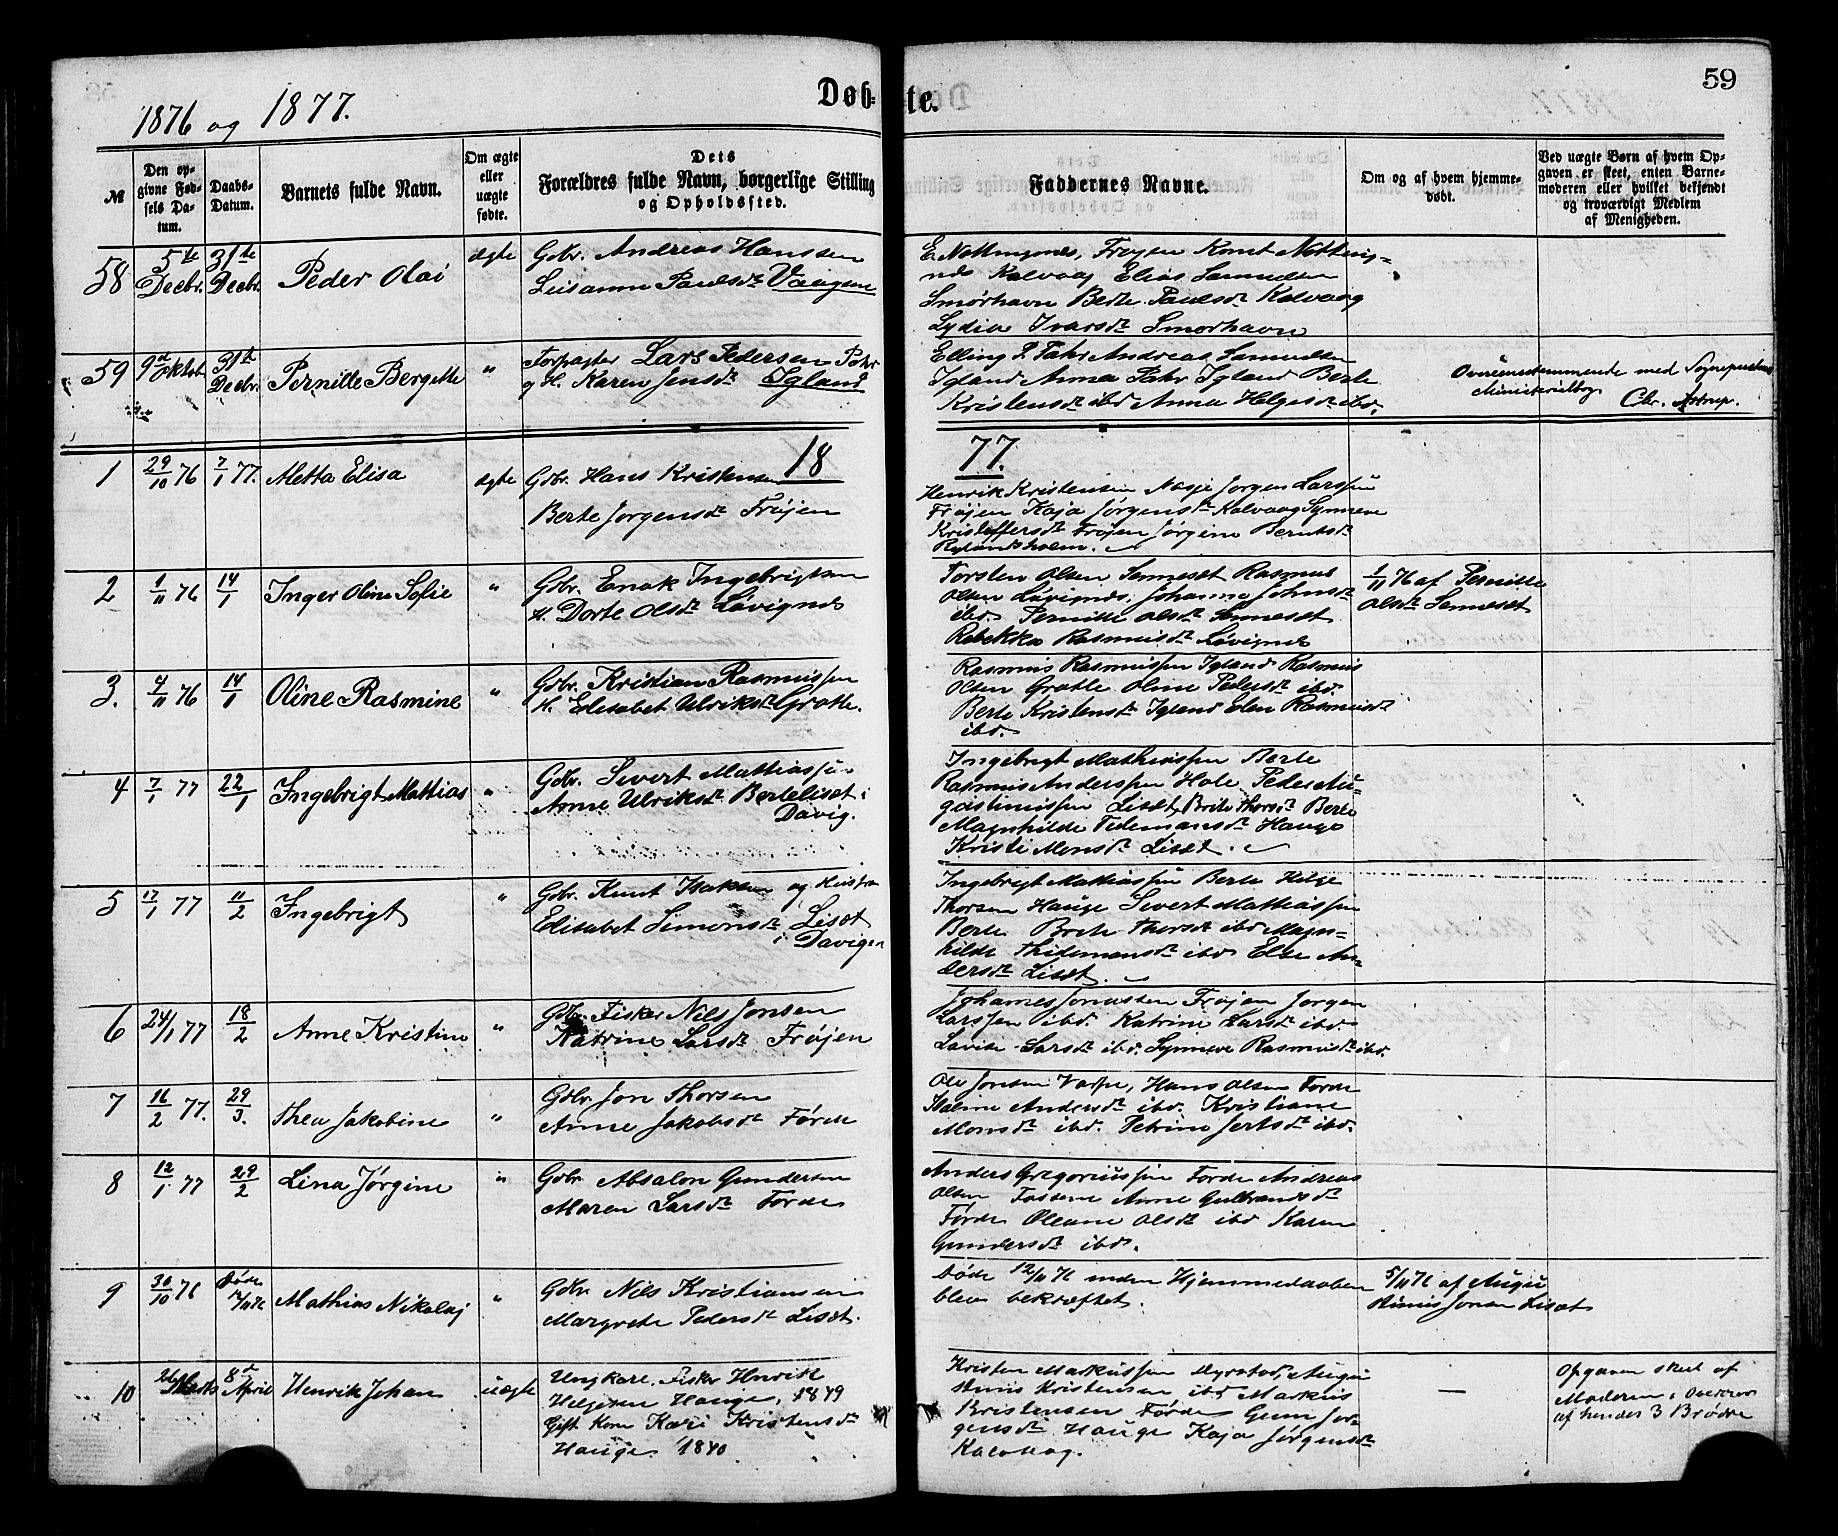 1876 og 1877.
Døb-
te.
59
№
Den op-
givne Fød-
sels Da-
tum.
Daabs-
Datum.
Barnets fulde Navn.
Om ægte
eller
uægte
fødte.
Dets
Forældres fulde Navn, borgerlige Stilling
og Opholdssted.
Faddernes Navne.
Om og af hvem hjemme-
døbt.
Ved uægte Børn af hvem Op-
gaven er skeet, enten Barne-
moderen eller hvilket bekjendt
og troværdigt Medlem
af Menigheden.
58
5te
Decbr.
31te
Decbr.
Peder Olai
ægte
Gbr. Andreas Hanssen
Paulsdr Vaagene
Frøyen
Kalvaag Elias Samuelsen
Smørhavn Berte Paulsdr Kalvaag
Lydia Ivarsdr Smørhavn
59
9d
Oktob.
31te
Decbr.
Pernille Bergette
"
Forpagter Lars Pedersen
og H. Karen Jensdr Igland
Elling P. Andreas Samuelsen
Igland Anna Igland Berte
Kristensdr ibd Anna Helgesdr ibd.
Overensstemmende med
Ministerialbog
Chr. Astrup.
18
77.
1
29/10 76
7/1 77.
Metta Elisa
ægte
Gbr. Hans Kristensen
Berte Jørgensdr Frøjen
Henrik Kristensen Jørgen Larssen
Frøjen Kaja Jørgensdr Kalvaag Synneve
Kristoffersdr Frøjen Jørgine Berntsdr
Rylandsholm.
2
1/11 76
14/1
Inger Oline Sofie
"
Gbr. Enok Ingebrigtsen
H. Dorte Olsdr Løvignes
Torsten Olsen Senneset Rasmus
Olsen Løvignes. Johanna Johnsdr
ibd. Pernille Olsdr Senneset
Rebekka Rasmusdr Løvignes
1/11 76 af Pernille
Olsdr Senneset
3.
4/11 76
14/1
Oline Rasmine
"
Gbr. Kristian Rasmussen
H. Elisabet Ulriksdr Grotle.
Rasmus Rasmussen Igland Rasmus
Olsen Grotle Oline Pedersdr ibd.
Berte Kristensdr Igland Elen Rasmusdr
ibd.
4
7/1 77
22/1
Ingebrigt Mathias
"
Gbr. Sivert Mathiassen
Anne Ulriksdr Berleliset i
Davig.
Ingebrigt Mathiassen Berle
Rasmus Andersen Hole Peder Au-
gustinussen Liset, Brite Thorsdr Berle
Magnhilde Tidemansdr Hauge
Kristi Monsdr Liset.
5
17/1 77
11/2
Ingebrigt
"
Gbr. Knut Isaksen og Hustru
Elisabet Simonsdr Liset
i Davigen
Ingebrigt Mathiassen Berle Helge
Thorsen Hauge Sivert Mathiassen
Berle Brite Thorsdr ibd Magn-
hilde Thidemansdr ibd Else An-
dersdr Liset.
6
24/1 77
18/2
Anne Kristine
"
Gbr. Fisker Nils Jonsen
Katrine Larsdr Frøjen
Johannes Jonassen Frøjen Jørgen
Larssen ibd. Katrine Larsdr ibd.
Lovise Larsdr ibd. Synneve Rasmusdr ibd.
7
16/2 77.
29/3.
Thea Jakobine
"
Gbr. Jon Thorsen
Anne Jakobsdr Førde
Ole Jonsen Hans Olsen Førde
Andersdr ibd. Kristiane
Monsdr ibd. Petrine ibd.
8
12/1 77
29/2
Lina Jørgine
"
Gbr Absalon Gundersen
Maren Larsdr Førde
Anders Gregoriussen Førde Andreas
Olsen Anne Gulbrandsdr
Førde Oleane Olsdr ibd Karen
Gundersdr ibd.
9
30/10 76
døde
12/11 76
Mathias Nikolaj
"
Gbr Nils Kristiansen
Margrete Pedersdr Liset.
døde 12/11 76 inden Hjemmedaaben
blev bekræftet.
5/11 76 af Augu-
stinus Jonsen Liset
10
Marts
8d
April
Henrik Johan
uægte
Ungkarl. Fisker Henrik
Helgesen Hauge, 1849
Gift Kone Kari Kristensdr
Hauge 1840
Kristen Markussen Augu-
stinus Kristensen ibd Markus
Kristensen Førde Gunn Jør-
gensdr Hauge Kaja Jørgensdr
Kalvaag.
—
Opgaven skeet af
Moderen i Overvær
af hendes 3 Brødre